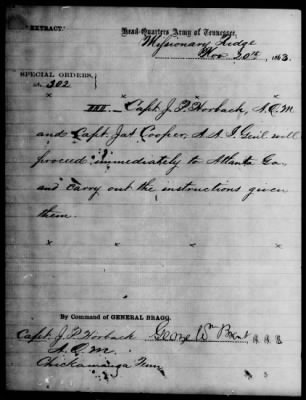 "EXTRACT."
Head-Quarters Army of Tennessee,
Missionary Ridge
Nov 20th, 1863.
SPECIAL ORDERS,
No. 302
x x x x
III. Capt. J. P. Horbach, A.Q.M
and Capt. Jas Cooper, A. A. I. Genl will
proceed immediately to Atlanta Ga.
and carry out the instructions given
them.
x x x x
By Command of GENERAL BRAGG.
Capt. J. P. Horback George Wm Brent,
A.Q.M.
Chickamauga Tenn